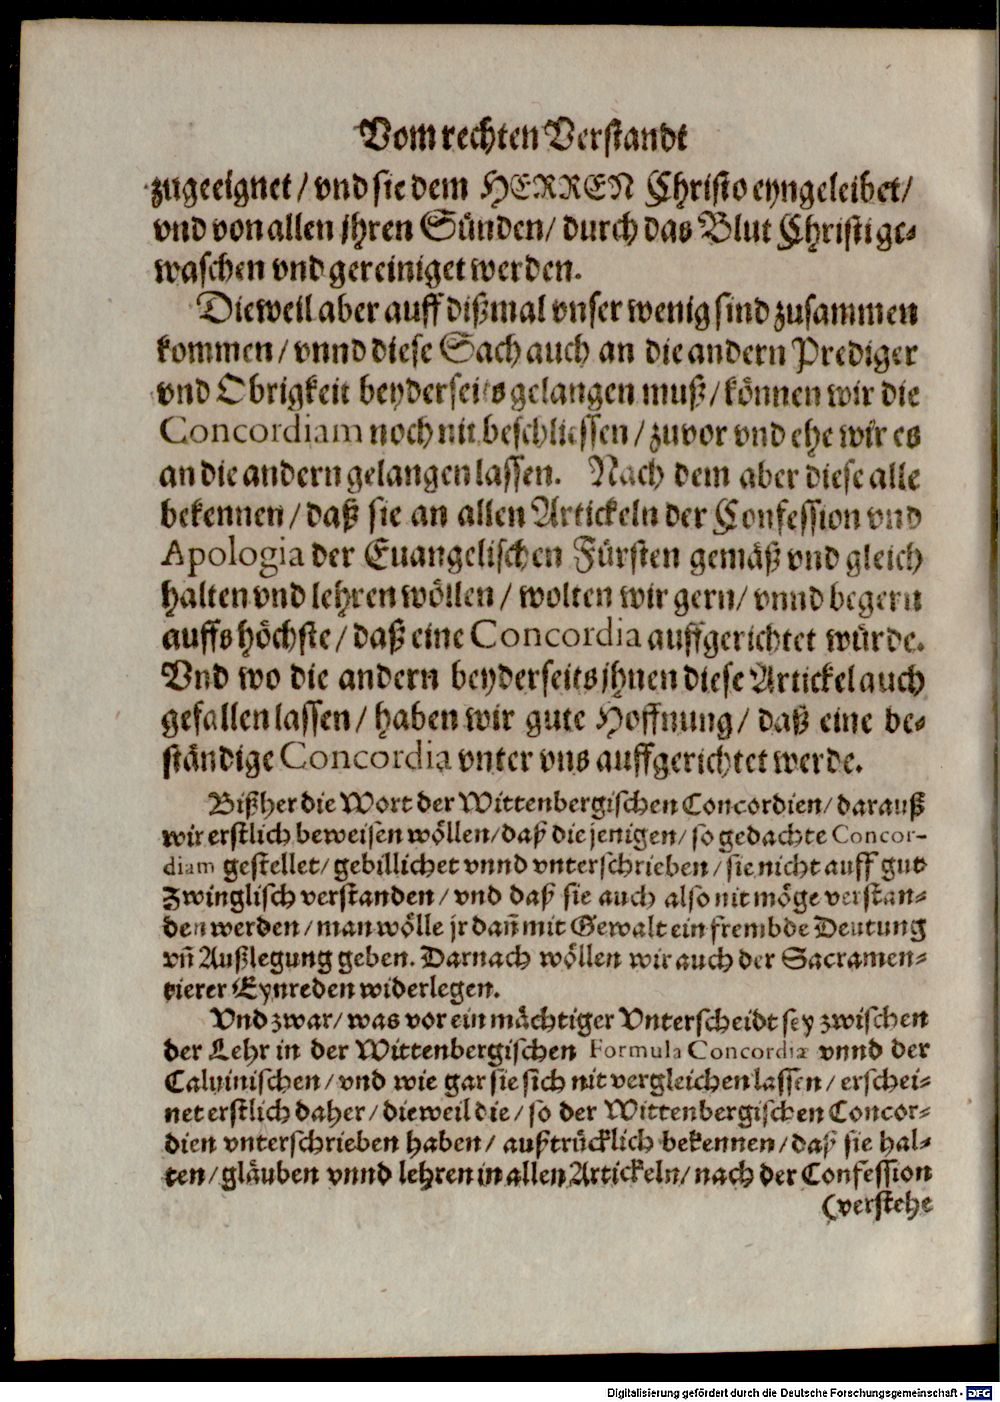 Vom rechten Verstandt
zugeeignet / vnd sie dem HERREN Christo eyngeleibet /
vnd von allen jhren Sünden / durch das Blut Christi ge-
waschen vnd gereiniget werden.
Dieweil aber auff dißmal vnser wenig sind zusammen
kommen / vnnd diese Sach auch an die andern Prediger
vnd Obrigkeit beyderseits gelangen muß / können wir die
Concordiam noch nit beschliessen / zuvor vnd ehe wir es
an die andern gelangen lassen. Nach dem aber diese alle
bekennen / daß sie an allen Artickeln der Confession vnd
Apologia der Euangelischen Fürsten gemäß vnd gleich
halten vnd lehren wöllen / wolten wir gern / vnnd begern
auffs höchste / daß eine Concordia auffgerichtet würde.
Vnd wo die andern beyderseits jhnen diese Artickel auch
gefallen lassen / haben wir gute Hoffnung / daß eine be-
ständige Concordia vnter vns auffgerichtet werde.
Bißher die Wort der Wittenbergischen Concordien / darauß
wir erstlich beweisen wöllen / daß die jenigen / so gedachte Concor-
diam gestellet / gebillichet vnnd vnterschrieben / sie nicht auff gut
Zwinglisch verstanden / vnd daß sie auch also nit möge verstan-
den werden / man wölle jr dañ mit Gewalt ein frembde Deutung
vñ Außlegung geben. Darnach wöllen wir auch der Sacramen-
tierer Eynreden widerlegen.
Vnd zwar / was vor ein mächtiger Vnterscheidt sey zwischen
der Lehr in der Wittenbergischen Formula Concordiæ vnnd der
Caluinischen / vnd wie gar sie sich nit vergleichen lassen / erschei-
net erstlich daher / dieweil die / so der Wittenbergischen Concor-
dien vnterschrieben haben / außtrücklich bekennen / daß sie hal-
ten / gläuben vnnd lehren in allen Artickeln / nach der Confession
(verstehe
Digitalisierung gefördert durch die Deutsche Forschungsgemeinschaft - DFG